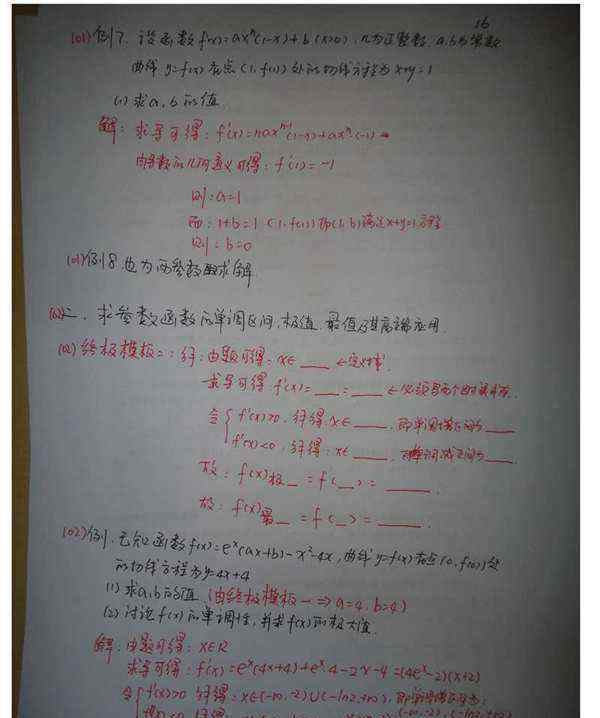 16
(01)例7. 设函数 f(x)=axⁿ(1-x)+b (x>0), n为正整数. a.b为常数
曲线 y=f(x) 在点(1, f(1))处的切线方程为x+y=1
(1) 求a, b的值.
解: 求导可得: f'(x)=naxⁿ⁻¹(1-x)+axⁿ·(-1)
由导数的几何意义可得: f'(1)=-1
则: a=1
而: 1+b=1 (1, f(1))即(1, b)满足x+y=1方程
则: b=0
(01)例8. 也为两参数求解.
(02)二、求参数函数的单调区间, 极值, 最值及其高端应用.
(02)终极模板二: 解: 由题可得: x∈ ___ ←定义域.
求导可得 f'(x)= ___ = ___ ←必须写两个
令{ f'(x)>0, 解得: x∈ ___ . 即单调增区间为 ___
f'(x)<0, 解得: x∈ ___ . 即单调减区间为 ___
故: f(x)极_ = f(_) = ___ .
故: f(x)最_ = f(_) = ___ .
(02)例1. 已知函数f(x)=eˣ(ax+b)-x²-4x, 曲线y=f(x)在点(0, f(0))处
的切线方程为y=4x+4
(1) 求a,b的值. (由终极模板一 ⇒ a=4, b=4)
(2) 讨论f(x)的单调性, 并求f(x)的极大值.
解: 由题可得: x∈R
求导可得: f'(x)=eˣ(4x+4)+eˣ·4-2x-4=(4eˣ-2)(x+2)
令{ f'(x)>0 解得: x∈(-∞,-2)∪(-ln2,+∞), 即单调增区间为: